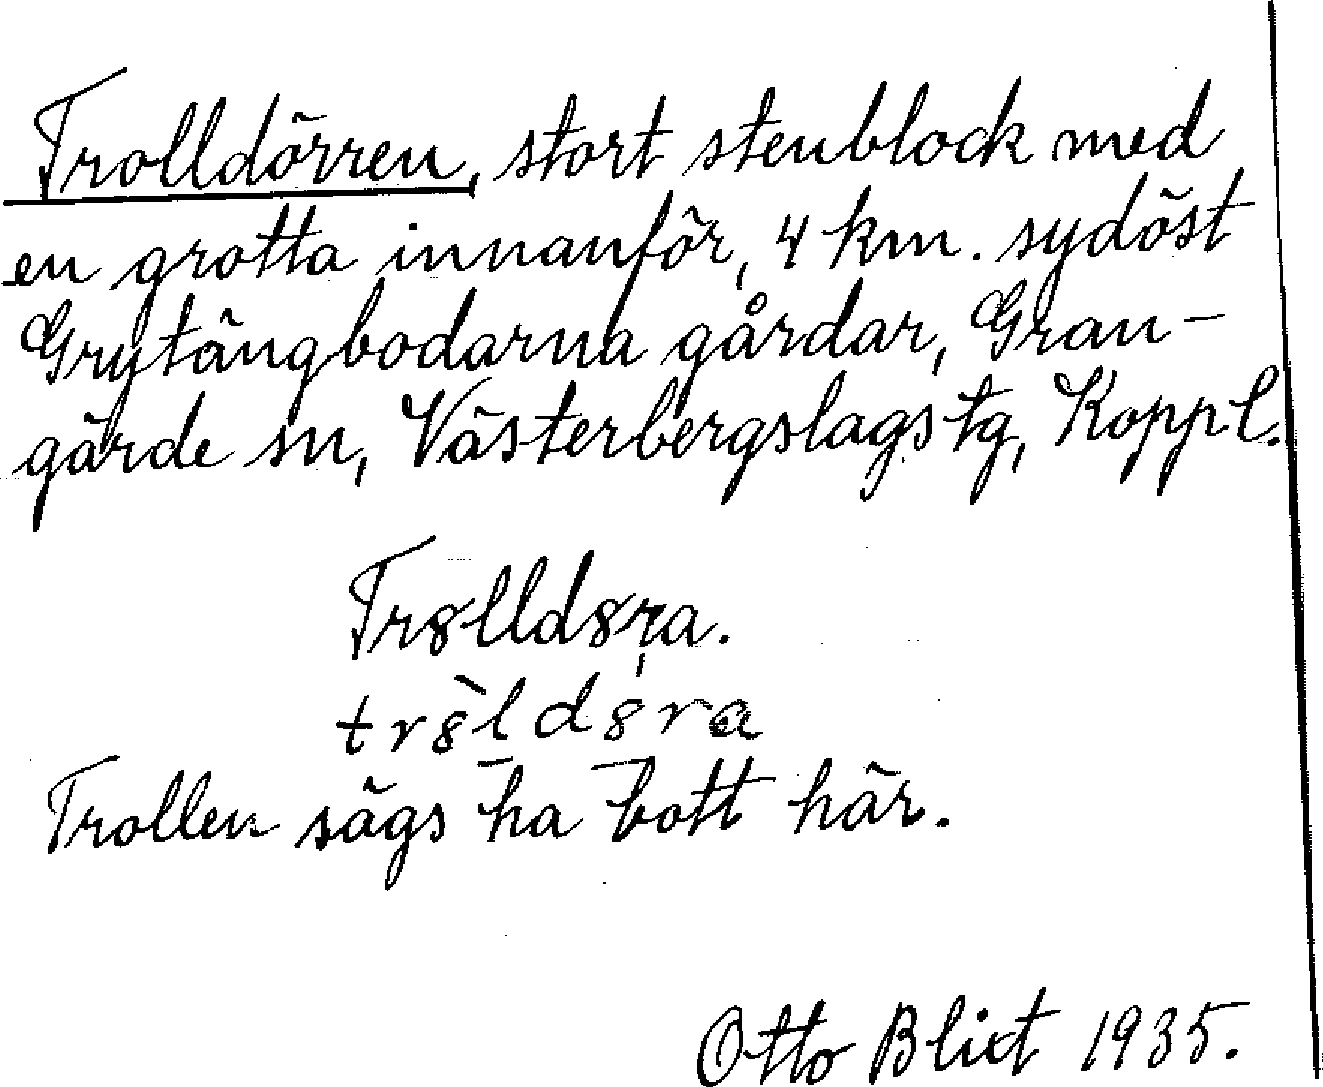 Trolldörren, stort stenblock med
en grotta innanför, 4 km. sydöst
Grytängbodarna gårdar, Gran-
gärde sn, Västerbergslags tg, Koppl.
Tr8lld8ra.
tr8̀ld8ra
Trollen sägs ha bott här.
Otto Blixt 1935.